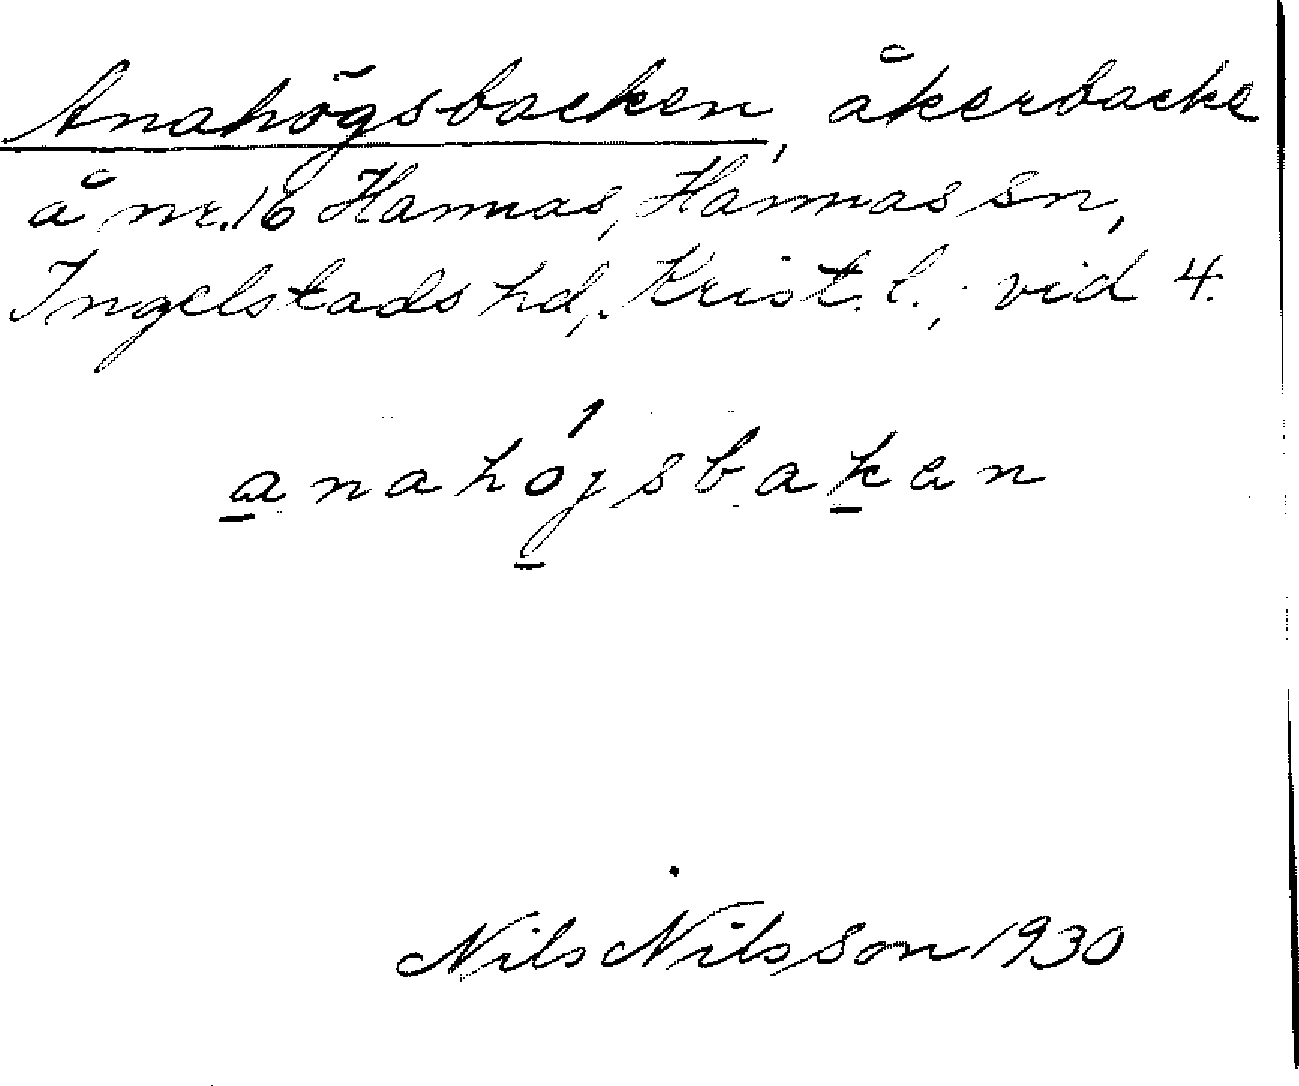 Anahögsbacken, åkerbacke
å nr. 16 Hannas, Hannas sn,
Ingelstads hd, Krist. l.; vid 4.
anahǿjsbaken
Nils Nilsson 1930